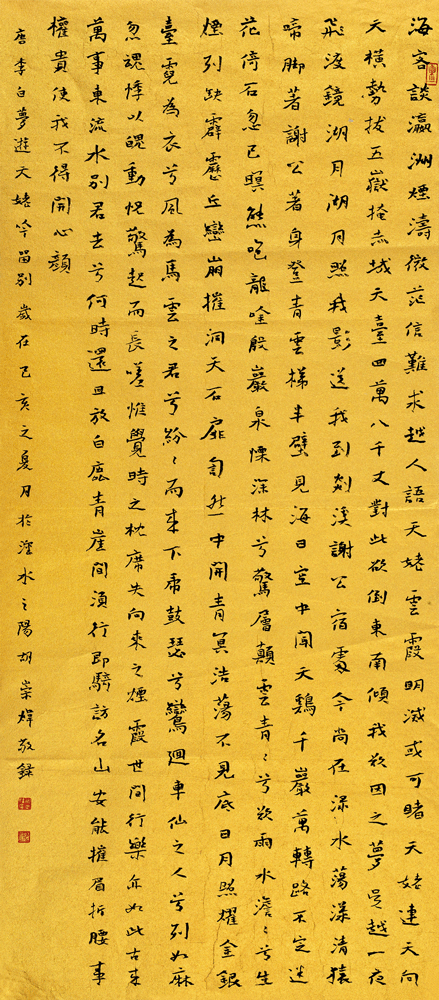 海客談瀛洲煙濤微茫信難求越人語天姥雲霞明滅或可睹天姥連天向
天橫勢拔五嶽掩赤城天臺四萬八千丈對此欲倒東南傾我欲因之夢吳越一夜
飛渡鏡湖月湖月照我影送我到剡溪謝公宿處今尚在淥水蕩漾清猿
啼脚著謝公著身登青雲梯半壁見海日空中聞天鷄千巖萬轉路不定迷
花倚石忽已暝熊咆龍吟殷巖泉慄深林兮驚層顛雲青〻兮欲雨水澹〻兮生
煙列缺霹靂丘巒崩摧洞天石扉訇然中開青冥浩蕩不見底日月照耀金銀
臺霓為衣兮風為馬雲之君兮紛〻而來下虎鼓瑟兮鸞迴車仙之人兮列如麻
忽魂悸以魄動怳驚起而長嗟惟覺時之枕席失向來之煙霞世間行樂亦如此古來
萬事東流水別君去兮何時還且放白鹿青崖間須行即騎訪名山安能摧眉折腰事
權貴使我不得開心顏
唐李白夢遊天姥吟留別 歲在己亥之夏月於水之陽胡崇煒敬錄